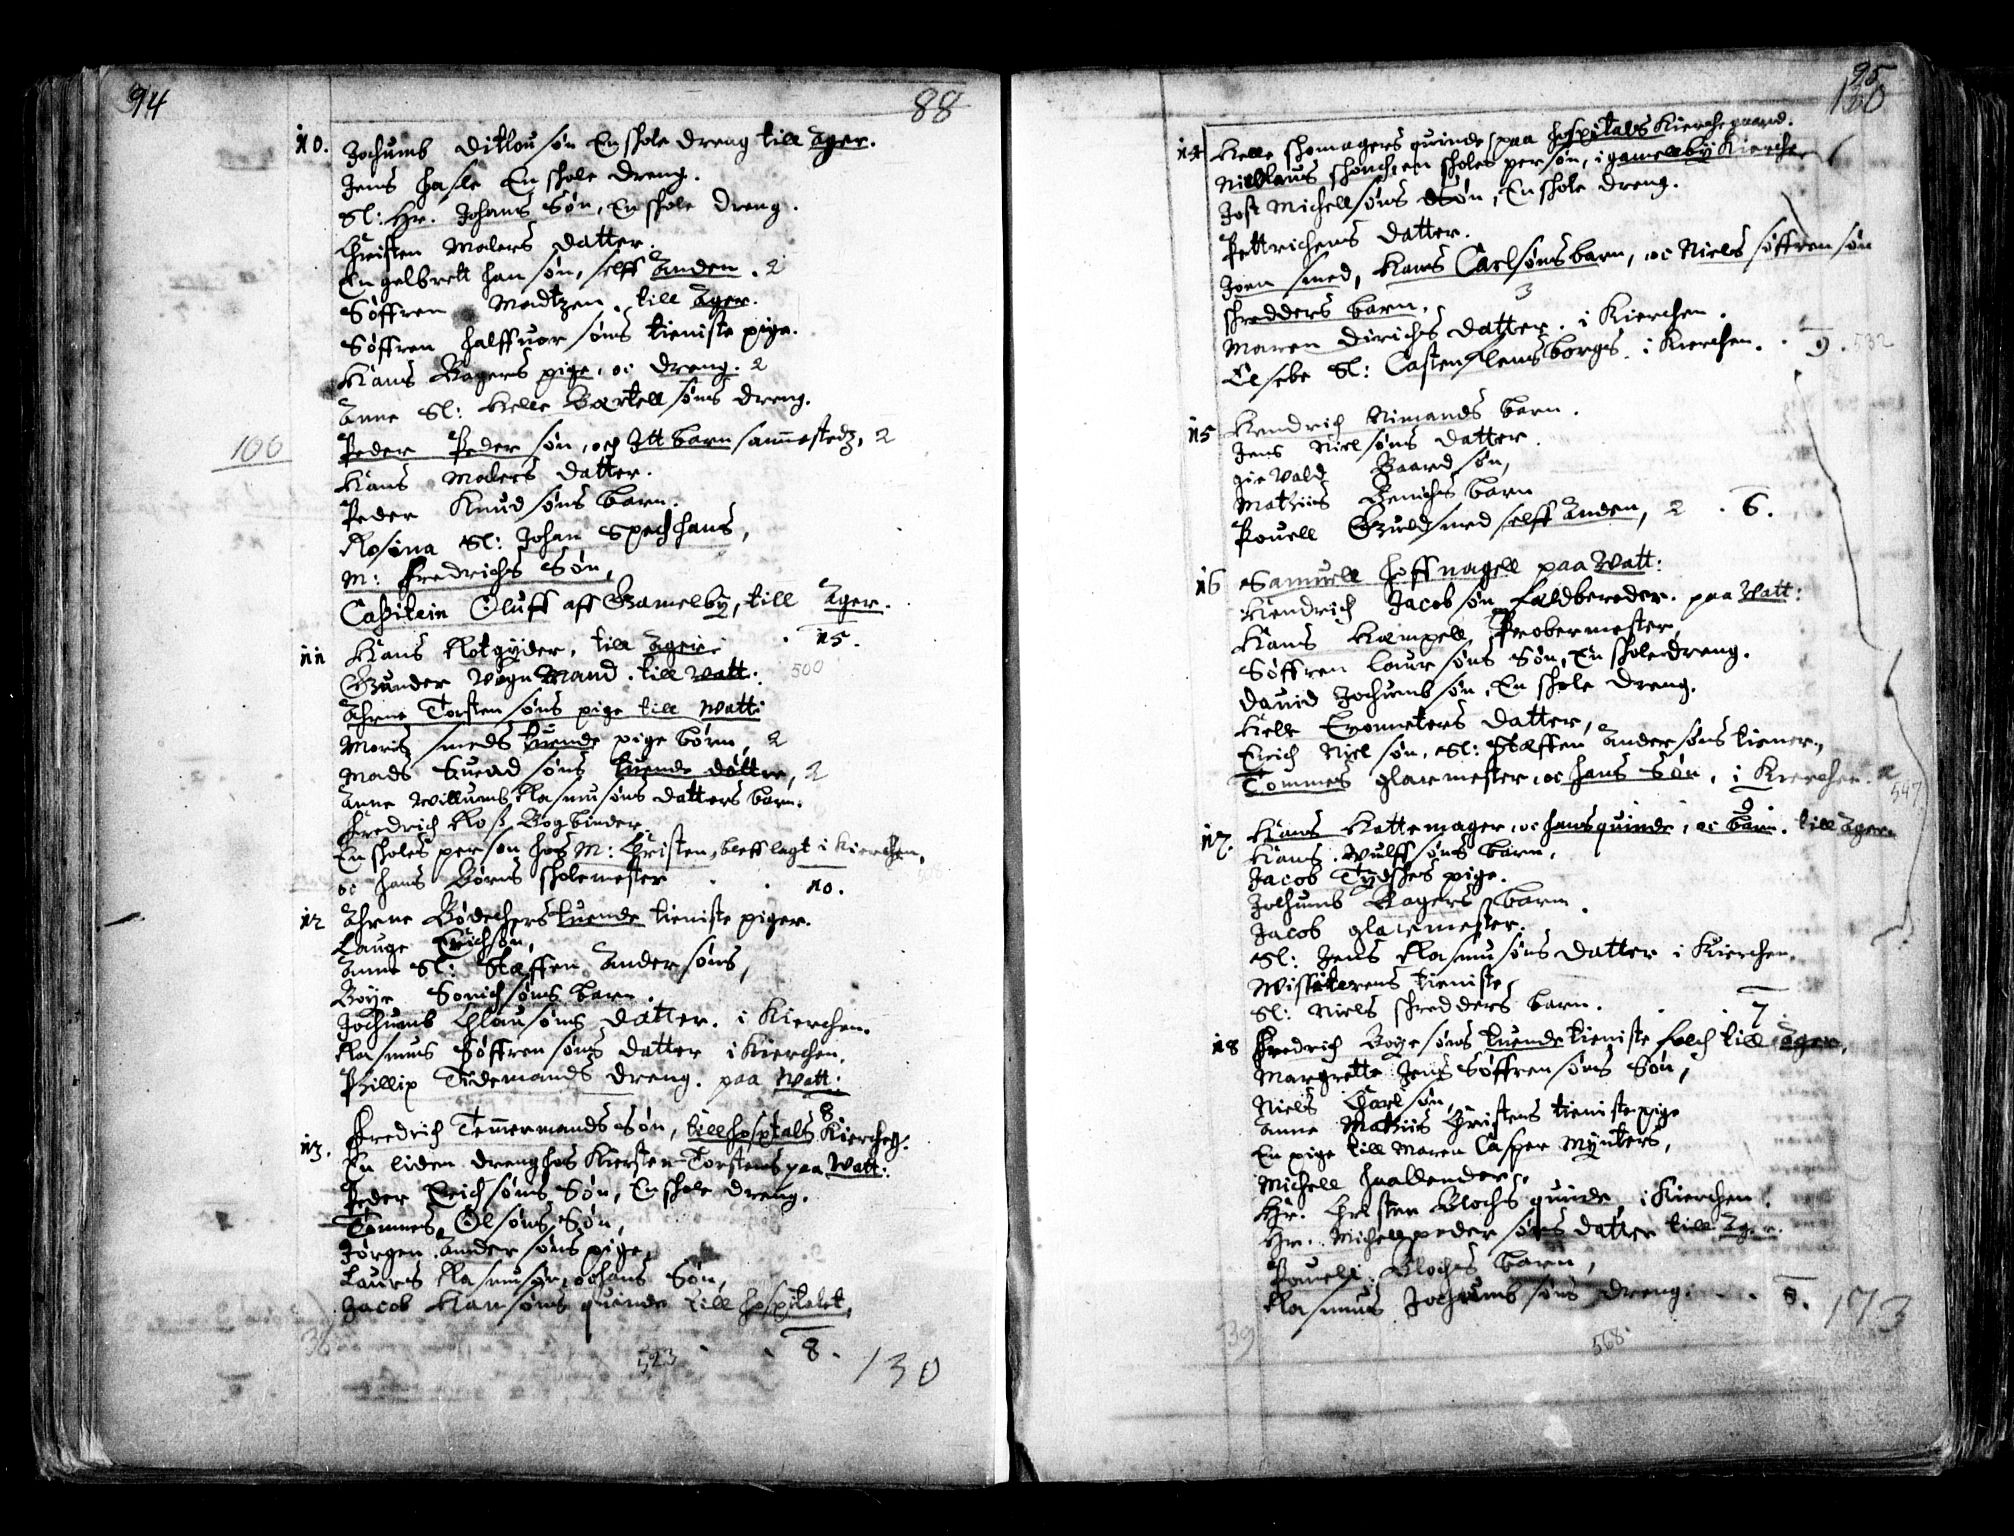 94
88
10. Jochumb Ditlou søn En skole dreng till Ager.
Jens Hasle En skole dreng.
Sl: Hr. Johans Søn, En skole dreng.
Christen Malers datter.
Engelbrett Han søn, selff Anden. 2
Søffren Madtzen. till Ager.
Søffren Halffuor søns tieniste pige.
Hans Bagers pige, oc dreng. 2
Anne Sl: Helle Bertell søns dreng.
100
Peder Peder søn, och Itt barn sammestedz, 2
Hans Malers datter.
Peder Knud søns barn.
Rosina Sl: Johan Spechhans,
M: Fredrichs Søn,
Capitein Oluff aff Gamelby, till Ager.
15.
11 Hans Rotgyder, till Ager.
500
Gunder Vogn Mand. till Watt:
Ahrne Torsten søns pige till Watt:
Moris smeds tuende pige børn, 2
Mads Suend søns tuende døtter, 2
Anne Willumb Rasmusøns datters barn.
Fredrich Ross Bogbinder
En skoles person hos M: Christen, bleff lagt i kierchen,
oc hans Børns skolemester
10.
12 Ahrne Bødechers tuende tieniste piger.
Lauge Erichsøn,
Anne Sl: Steffen Andersøns,
Boye Sonichsøns barn.
Jochumb Clausøns datter. i Kierchen.
Rasmus Søffrensøns datter i Kierchen.
Phillip Tidemands dreng. paa Watt:
8
13. Fredrich Temmermands Søn, till hospitals Kircheg:
En liden dreng hos Kiersten Torstens paa Watt:
Peder Erichsøns Søn, En skole dreng.
Tommes Olsøns Søn,
Jørgen Andersøns pige,
Laures Rasmusøn, oc hans Søn,
Jacob Hansøns quinde till hospitalet,
8.
523
130
95
14 Helle skomagers quinde, paa hospitals Kierchegaard.
Nicklaus skoles person, i gamelby Kierche
Jost Michellsøns Søn, En skole dreng.
Pettrichens datter.
Joen smed, Hans Carlsøns barn, oc Niels søffrensøn
skredders barn. 3
Maren Dirichs datter. i Kierchen.
Elsebe Sl: Casten Flensborgs. i Kierchen. 9. 532
15 Hendrich Nimands barn.
Jens Nielsøns datter.
Baardsøn,
Mathiis barn
Pouell Guldsmed selff Anden, 2 . 6.
16 Samuell Hoffnagell paa Watt:
Hendrich Jacobsøn Feldbereder. paa Watt:
Hans Kempell, Probermester,
Søffren Laursøns Søn, En skoledreng.
Dauid Jochumbsøn, En skole dreng.
Helle datter,
Erich Nielsøn, Sl: Steffen Andersøns tiener,
Tommes glarmester, oc hans Søn, i Kierchen. 2
547
9
17. Hans Hattemager, oc hans quinde, oc barn. till Ager
Hans Wulffsøns barn,
Jacob Tydskes pige.
Jochumb Bagers barn.
Jacob glarmester.
Sl: Jens Rasmusøns datter i Kierchen.
tieniste
Sl: Niels skredders barn.
7
18 Fredrich Boyesøns tuende tieniste folch till Ager,
Margrette Jens Søffrensøns Søn,
Niels Carlsøn,
Anne Mathiis Christens tieniste pige
En pige till Maren Casper Mynters,
Michell Haallender.
Hr. Christen Blochs quinde, i Kierchen.
Hr. Michell pedersøns datter till Ager.
Pouell Blochs barn,
Rasmus Jochumbsøns dreng. 8.
173
39
568